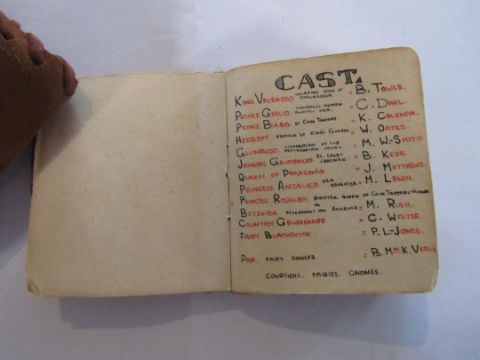 CAST.
KING VALOROSO USURPING KING OF PAFLAGONIA. = B. TOWLE.
PRINCE GIGLIO. VALOROSO'S NEPHEW RIGHTFUL HEIR. = C. DAHL.
PRINCE BULBO OF CRIM TARTARY = K. COLENDA.
HEDZOFF CAPTAIN OF KING'S GUARDS = W. OATES.
GLUMBOSO. PAFLAGONIAN = M. W.-SMITH
JENKINS GRUFFANUFF = B. KERR.
QUEEN OF PAFLAGONIA = J. MATTHEWS.
PRINCESS ANGELICA HER DAUGHTER = M. LEWIN.
PRINCESS ROSALBA RIGHTFUL QUEEN OF CRIM TARTARY
BETSINDA ATTENDANT ON ANGELICA = M. RUSH.
COUNTESS GRUFFANUFF = C. WALTER.
FAIRY BLACKSTICK = P. L-JONES.
FAIRY DANCER = B. MacK. VEALE
COURTIERS. FAIRIES. GNOMES.